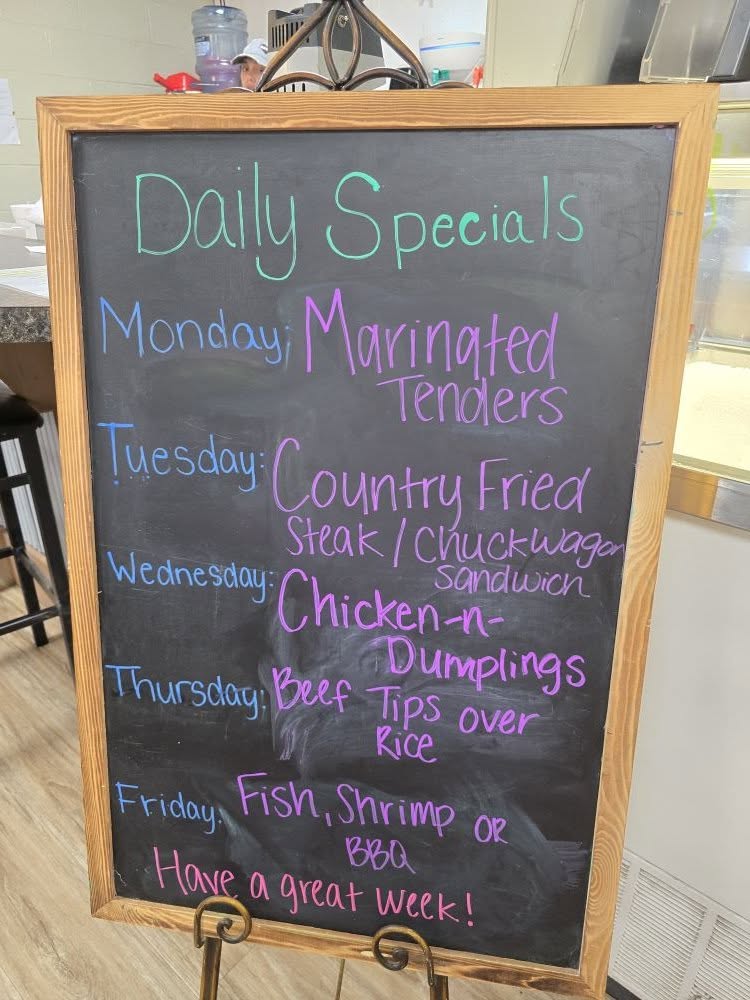 Daily Specials
Monday: Marinated
Tenders
Tuesday: Country Fried
Steak / Chuckwagon
Sandwich
Wednesday: Chicken-n-
Dumplings
Thursday: Beef Tips over
Rice
Friday: Fish, Shrimp OR
BBQ
Have a great week!